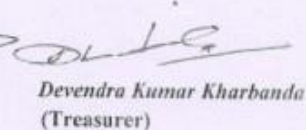 Devendra Kumar Kharbanda
(Treasurer)